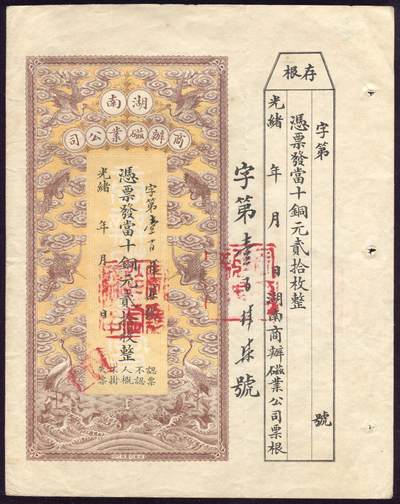 存根
字第 號
憑票發當十銅元貳拾枚整
光緒 年 月 日湖南商辦磁業公司票根
字第壹百肆柒號
湖南
商辦磁業公司
字第壹百
憑票發當十銅元貳拾枚整
光緒 年 月 日
認票不認人概不掛失票